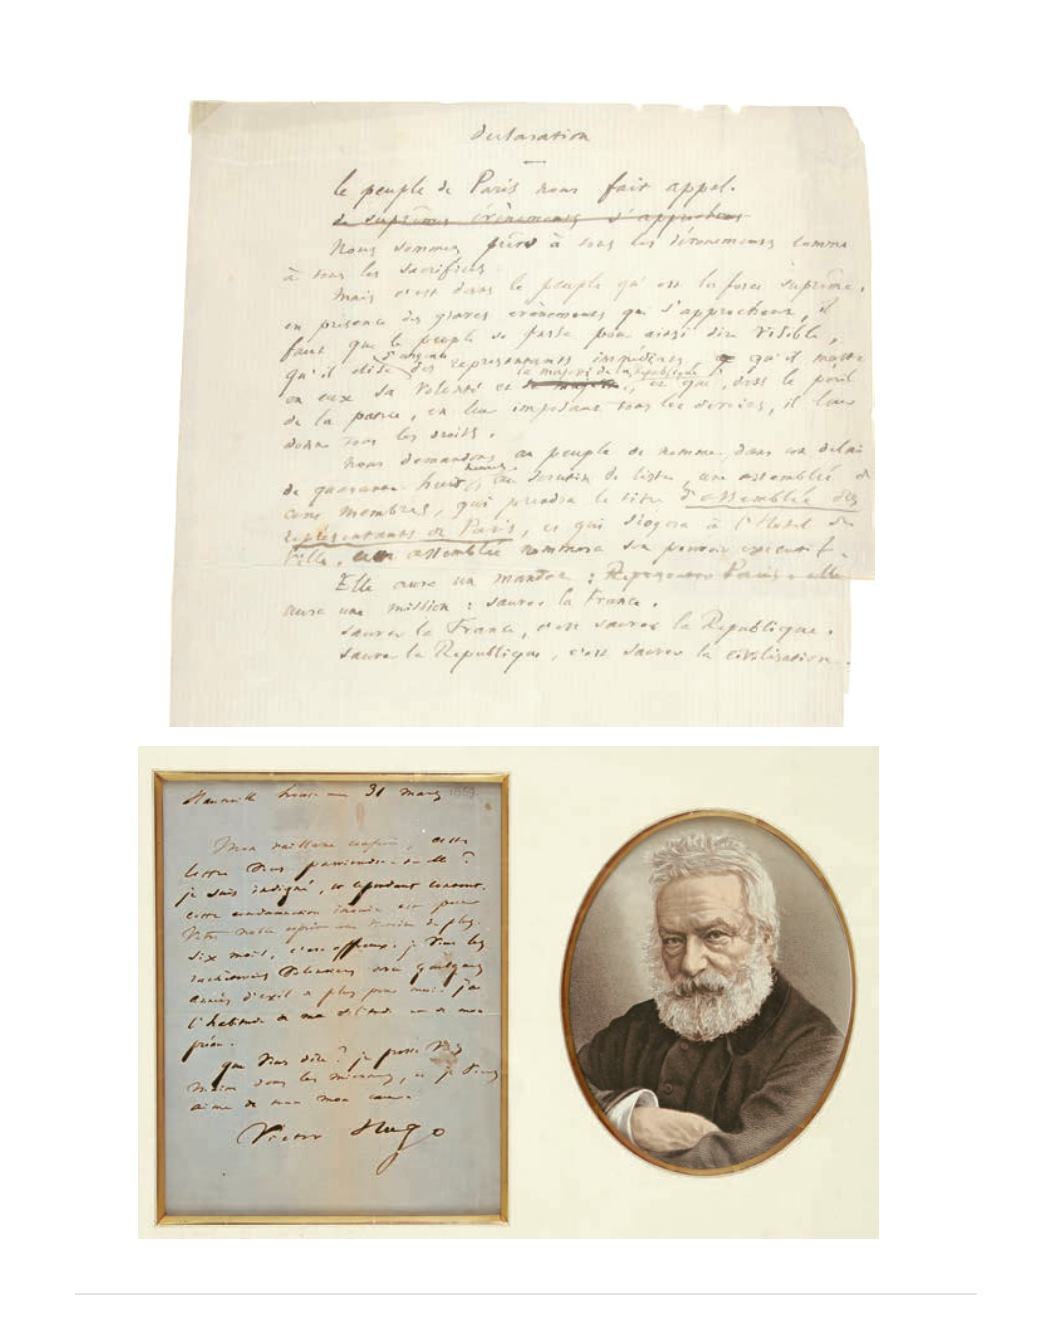 Déclaration
le peuple de Paris nous fait appel.
de suprêmes évènements s'approchent
Nous sommes prêts à tous les évènements comme
à tous les sacrifices.
Mais c'est dans le peuple qu'est la force suprême.
en présence des graves évènements qui s'approchent, il
faut que le peuple se fasse pour ainsi dire visible,
d'urgence
qu'il élise des représentants immédiats, qu'il mette
la majesté de la république
en eux sa volonté et, et que, dans le péril
de la patrie, en leur imposant tous les devoirs, il leur
donne tous les droits.
Nous demandons au peuple de nommer, dans un délai
heures
de quarante-huit, au scrutin de liste, une assemblée de
cent membres, qui prendra le titre d'assemblée des
représentants de Paris, et qui siégera à l'Hôtel de
Ville. assemblée nommera son pouvoir exécutif.
Elle aura un mandat : Représenter Paris. elle
aura une mission : sauver la France.
Sauver la France, c'est sauver la République.
Sauver la République, c'est sauver la civilisation.
Hauteville house 31 mars 1869
Mon vaillant confrère, cette
lettre vous parviendra-t-elle ?
je suis indigné, et cependant content.
cette condamnation inouïe est pour
votre noble esprit un de plus.
Six mois, c'est affreux. je vous les
volontiers quelques
années d'exil de plus pour moi. j'ai
l'habitude de ma solitude et de mon
que vous dire ? je presse vos
mains dans les miennes, et je vous
aime de tout mon cœur.
Victor Hugo